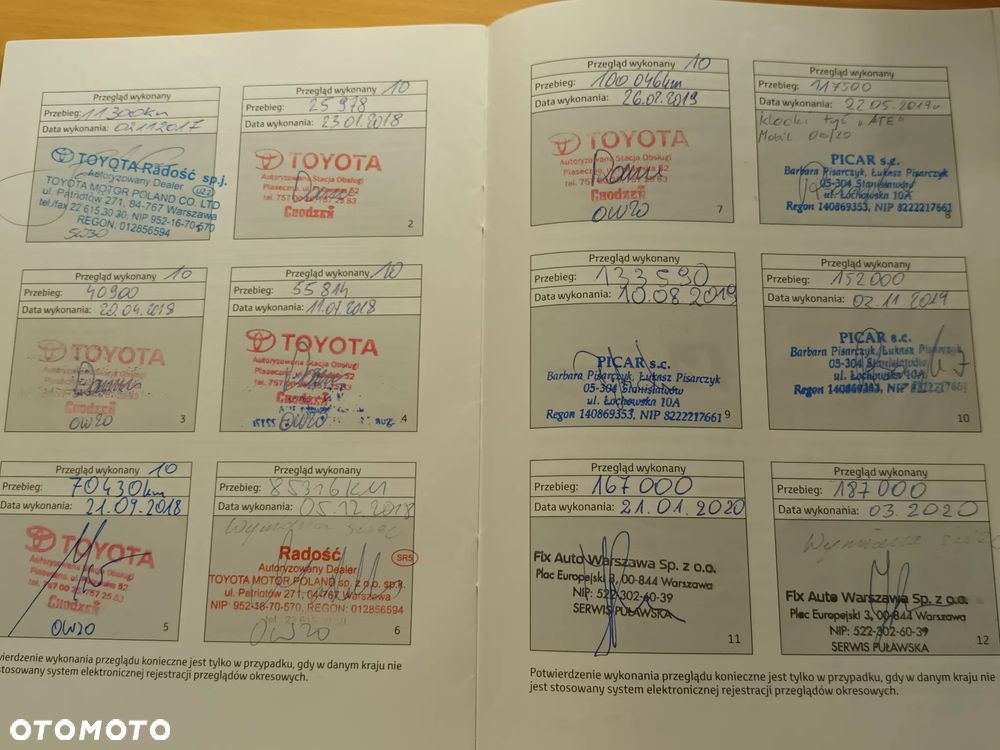 Przegląd wykonany
Przebieg: 11300km
Data wykonania: 02112017
TOYOTA Radość sp.j.
Autoryzowany Dealer
TOYOTA MOTOR POLAND CO. LTD
ul. Patriotów 271, 04-767 Warszawa
tel./fax 22 615 30 30; NIP 952-16-70-570
REGON: 012856594
5W30
Przegląd wykonany 10
Przebieg: 25 978
Data wykonania: 23.01.2018
TOYOTA
Autoryzowana Stacja Obsługi
Chodzeń
2
Przegląd wykonany 10
Przebieg: 40900
Data wykonania: 20.04.2018
TOYOTA
Chodzeń
0W20
3
Przegląd wykonany 10
Przebieg: 55 814
Data wykonania: 11.07.2018
TOYOTA
Autoryzowana Stacja Obsługi
Chodzeń
0W20
4
Przegląd wykonany 10
Przebieg: 70430km
Data wykonania: 21.09.2018
TOYOTA
Autoryzowana Stacja Obsługi
Chodzeń
0W20
5
Przegląd wykonany
Przebieg: 85326 KM
Data wykonania: 05.12.2018
Wymiana świec
Radość
Autoryzowany Dealer
SR5
TOYOTA MOTOR POLAND sp. z o.o. sp.k.
ul. Patriotów 271, 04-767 Warszawa
NIP 952-16-70-570, REGON: 012856594
0W20
6
twierdzenie wykonania przeglądu konieczne jest tylko w przypadku, gdy w danym kraju nie
stosowany system elektronicznej rejestracji przeglądów okresowych.
Przegląd wykonany 10
Przebieg: 100 046km
Data wykonania: 26.02.2019
TOYOTA
Autoryzowana Stacja Obsługi
Chodzeń
0W20
7
Przegląd wykonany
Przebieg: 117500
Data wykonania: 22.05.2019
Klocki tył „ATE"
Mobil 0W/20
PICAR s.c.
Barbara Pisarczyk, Łukasz Pisarczyk
05-304 Stanisławów
ul. Łochowska 10A
Regon 140869353, NIP 8222217661
8
Przegląd wykonany
Przebieg: 133590
Data wykonania: 10.08.2019
PICAR s.c.
Barbara Pisarczyk, Łukasz Pisarczyk
05-304 Stanisławów
ul. Łochowska 10A
Regon 140869353, NIP 8222217661
9
Przegląd wykonany
Przebieg: 152000
Data wykonania: 02.11.2019
PICAR s.c.
Barbara Pisarczyk, Łukasz Pisarczyk
05-304 Stanisławów
ul. Łochowska 10A
Regon 140869353, NIP 8222217661
10
Przegląd wykonany
Przebieg: 167 000
Data wykonania: 21.01.2020
Fix Auto Warszawa Sp. z o.o.
Plac Europejski 3, 00-844 Warszawa
NIP: 522-302-60-39
SERWIS PUŁAWSKA
11
Przegląd wykonany
Przebieg: 187000
Data wykonania: 03.2020
Wymiana
Fix Auto Warszawa Sp. z o.o.
Plac Europejski 3, 00-844 Warszawa
NIP: 522-302-60-39
SERWIS PUŁAWSKA
12
Potwierdzenie wykonania przeglądu konieczne jest tylko w przypadku, gdy w danym kraju nie
jest stosowany system elektronicznej rejestracji przeglądów okresowych.
OTOMOTO